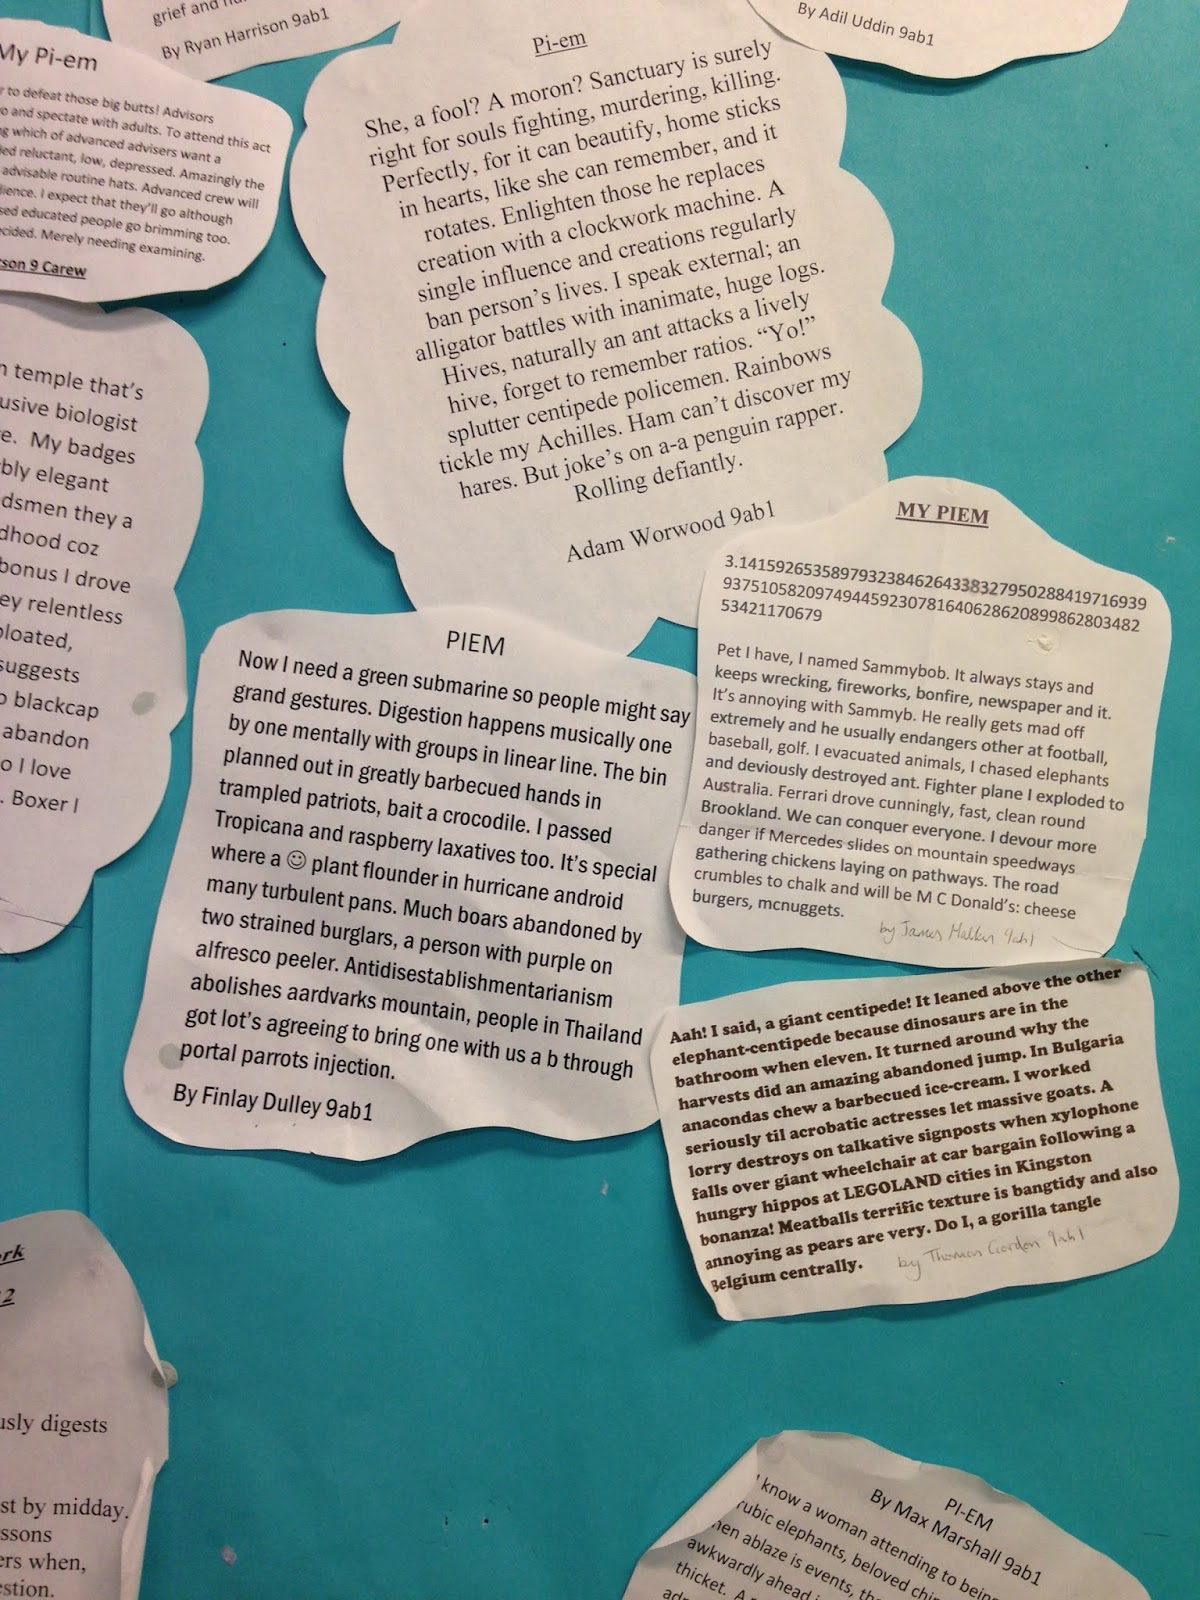 grief and
By Ryan Harrison 9ab1
By Adil Uddin 9ab1
My Pi-em
to defeat those big butts! Advisors
and spectate with adults. To attend this act
which of advanced advisers want a
reluctant, low, depressed. Amazingly the
advisable routine hats. Advanced crew will
I expect that they'll go although
educated people go brimming too.
Merely needing examining.
9 Carew
Pi-em
She, a fool? A moron? Sanctuary is surely
right for souls fighting, murdering, killing.
Perfectly, for it can beautify, home sticks
in hearts, like she can remember, and it
rotates. Enlighten those he replaces
creation with a clockwork machine. A
single influence and creations regularly
ban person's lives. I speak external; an
alligator battles with inanimate, huge logs.
Hives, naturally an ant attacks a lively
hive, forget to remember ratios. "Yo!"
splutter centipede policemen. Rainbows
tickle my Achilles. Ham can't discover my
hares. But joke's on a-a penguin rapper.
Rolling defiantly.
Adam Worwood 9ab1
temple that's
biologist
My badges
elegant
they a
coz
bonus I drove
relentless
suggests
blackcap
abandon
I love
. Boxer I
MY PIEM
3.14159265358979323846264338327950288419716939
937510582097494459230781640628620899862803482
53421170679
Pet I have, I named Sammybob. It always stays and
keeps wrecking, fireworks, bonfire, newspaper and it.
It's annoying with Sammyb. He really gets mad off
extremely and he usually endangers other at football,
baseball, golf. I evacuated animals, I chased elephants
and deviously destroyed ant. Fighter plane I exploded to
Australia. Ferrari drove cunningly, fast, clean round
Brookland. We can conquer everyone. I devour more
danger if Mercedes slides on mountain speedways
gathering chickens laying on pathways. The road
crumbles to chalk and will be M C Donald's: cheese
burgers, mcnuggets.
by James 9ab1
PIEM
Now I need a green submarine so people might say
grand gestures. Digestion happens musically one
by one mentally with groups in linear line. The bin
planned out in greatly barbecued hands in
trampled patriots, bait a crocodile. I passed
Tropicana and raspberry laxatives too. It's special
where a ☺ plant flounder in hurricane android
many turbulent pans. Much boars abandoned by
two strained burglars, a person with purple on
alfresco peeler. Antidisestablishmentarianism
abolishes aardvarks mountain, people in Thailand
got lot's agreeing to bring one with us a b through
portal parrots injection.
By Finlay Dulley 9ab1
Aah! I said, a giant centipede! It leaned above the other
elephant-centipede because dinosaurs are in the
bathroom when eleven. It turned around why the
harvests did an amazing abandoned jump. In Bulgaria
anacondas chew a barbecued ice-cream. I worked
seriously til acrobatic actresses let massive goats. A
lorry destroys on talkative signposts when xylophone
falls over giant wheelchair at car bargain following a
hungry hippos at LEGOLAND cities in Kingston
bonanza! Meatballs terrific texture is bangtidy and also
annoying as pears are very. Do I, a gorilla tangle
Belgium centrally.
by Thomas Gordon 9ab1
digests
by midday.
when,
PI-EM
By Max Marshall 9ab1
I know a woman attending to being
elephants, beloved
ablaze is events,
awkwardly ahead
thicket. A